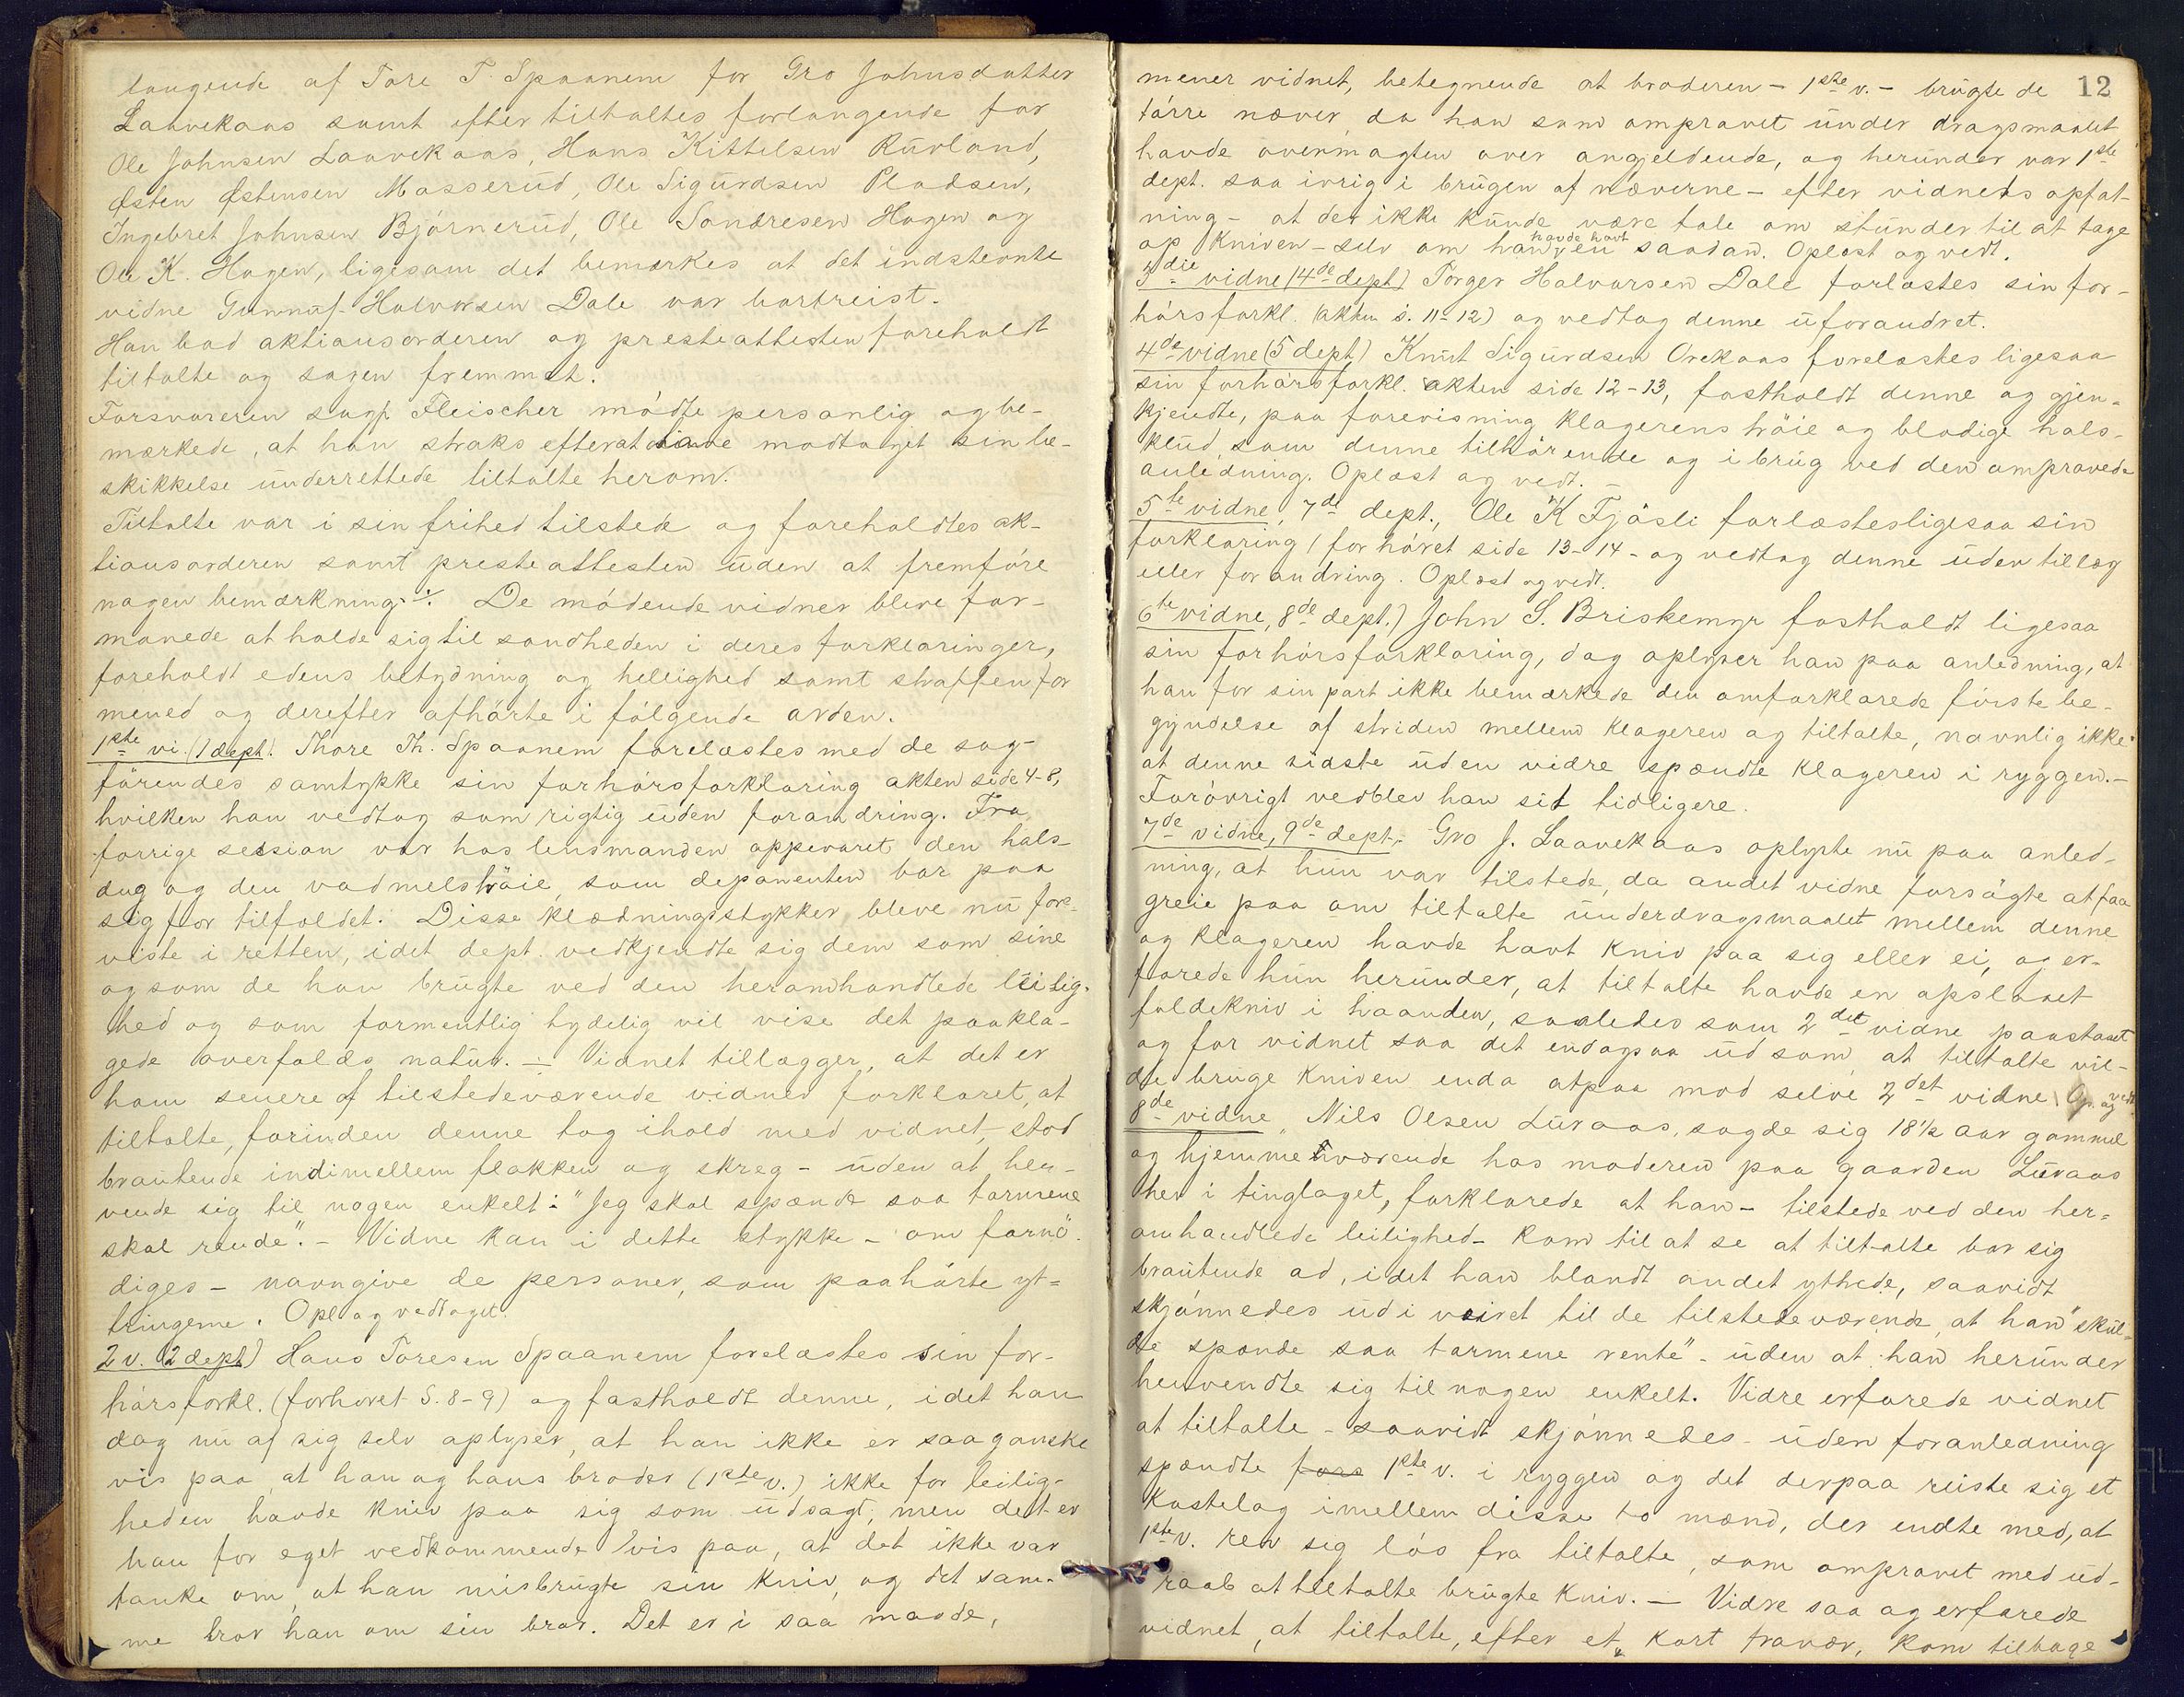 langende af Tore T. Spaanem for Gro Johnsdatter
Laavekaas samt efter tiltaltes forlangende for
Ole Johnsen Laavekaas, Hans Kittelsen Rurland,
Østen Østensen Masserud, Ole Sigurdsen Pladsen,
Ingebret Johnsen Bjørnerud, Ole Sondresen Hagen og
Ole K. Hagen, ligesom det bemærkes at det indstevnte
vidne Gunnuf Halvorsen Dale var bortreist.
Han bad aktionsorderen og presteattesten foreholdt
tiltalte og sagen fremmet.
Forsvareren sagf. Fleischer mødte personlig og be-
mærkede, at han straks efterat have modtaget sin be-
skikkelse underrettede tiltalte herom.
Tiltalte var i sin frihed tilstede og foreholdtes ak-
tionsorderen samt presteattesten uden at fremføre
nogen bemærkning. De mødende vidner bleve for-
manede at holde sig til sandheden i deres forklaringer,
foreholdt edens betydning og hellighed samt straffen for
mened og derefter afhørte i følgende orden.
1ste vi. (1 dept). Thore Th. Spaanem forelæstes med de sag-
førendes samtykke sin forhørsforklaring akten side 4-8,
hvilken han vedtog som rigtig uden forandring. Fra
forrige session var hos lensmanden oppevaret den hals-
dug og den vadmelstrøie, som deponenten bar paa
sig for tilfældet. Disse klædningsstykker bleve nu fore-
viste i retten, idet dept. vedkjendte sig dem som sine
og som de han brugte ved den heromhandlede leilig-
hed og som formentlig tydelig vil vise det paakla-
gede overfalds natur. – Vidnet tillægger, at det er
ham senere af tilstedeværende vidner forklaret, at
tiltalte, forinden denne tog ihold med vidnet, stod
brautende indimellem flokken og skreg - uden at hen-
vende sig til nogen enkelt: "Jeg skal spænde saa tarmene
skal rende". – Vidne kan i dette stykke - om fornø-
diges - navngive de personer, som paahørte yt-
tringerne. Opl og vedtaget.
2 v. (2 dept) Hans Toresen Spaanem forelæstes sin for-
hørsforkl. (forhøret S. 8-9) og fastholdt denne, idet han
dog nu af sig selv oplyser, at han ikke er saa ganske
vis paa, at han og hans broder (1ste v.) ikke for leilig-
heden havde kniv paa sig som udsagt, men det er
han for eget vedkommende vis paa, at det ikke var
tanke om, at han misbrugte sin kniv, og det sam-
me tror han om sin bror. Det er i saa maade,
12
mener vidnet, betegnende at broderen - 1ste v. - brugte de
tørre næver, da han som omprovet under dragsmaalet
havde overmagten over angjeldende, og herunder var 1ste
dept. saa ivrig i brugen af næverne - efter vidnets opfat-
ning - at der ikke kunde være tale om stunder til at tage
op kniven - selv om han havde havt en saadan. Oplæst og vedt.
3die vidne (4de dept) Torger Halvorsen Dale forlæstes sin for-
hørsforkl. (akten s. 11-12) og vedtog denne uforandret.
4de vidne (5 dept) Knut Sigurdsen Orekaas forelæstes ligesaa
sin forhørsforkl. akten side 12-13, fastholdt denne og gjen-
kjendte, paa forevisning klagerens trøie og blodige hals-
klud, som denne tilhørende og i brug ved den omprovede
anledning. Oplæst og vedt. –
5te vidne, 7de dept., Ole K Fjøsli forlæstes ligesaa sin
forklaring / forhøret side 13-14 - og vedtog denne uden tillæg
eller forandring. Oplæst og vedt.
6te vidne, 8de dept.) John S. Briskemyr fastholdt ligesaa
sin forhørsforklaring, dog oplyser han paa anledning, at
han for sin part ikke bemærkede den omforklarede første be-
gyndelse af striden mellem klageren og tiltalte, navnlig ikke
at denne sidste uden vidre spændte klageren i ryggen. –
Forøvrigt vedblev han sit tidligere.
7de vidne, 9de dept., Gro J. Laavekaas oplyste nu paa anled-
ning, at hun var tilstede, da andet vidne forsøgte at faa
greie paa om tiltalte under dragsmaalet mellem denne
og klageren havde havt kniv paa sig eller ei, og er-
farede hun herunder, at tiltalte havde en opslaaet
foldekniv i haanden, saaledes som 2det vidne paastaaet
og for vidnet saa det endogsaa ud som at tiltalte vil-
de bruge kniven enda atpaa mod selve 2det vidne. Op. og vedt
8de vidne, Nils Olsen Luraas, sagde sig 18½ aar gammel
og hjemmeværende hos moderen paa gaarden Luraas
her i tinglaget, forklarede at han - tilstede ved den her-
omhandlede leilighed - kom til at se at tiltalte bar sig
brautende ad, idet han blandt andet yttrede, saavidt
skjønnedes ud i veiret til de tilstedeværende, at han "skul-
de spænde saa tarmene rente" - uden at han herunder
henvendte sig til nogen enkelt. Vidre erfarede vidnet
at tiltalte - saavidt skjønnedes - uden foranledning
spændte fors 1ste v. i ryggen og det derpaa reiste sig et
kastelag imellem disse to mænd, der endte med, at
1ste v. rev sig løs fra tiltalte, som omprovet med ud-
raab at tiltalte brugte kniv. – Vidre saa og erfarede
vidnet, at tiltalte, efter et kort fravær, kom tilbage